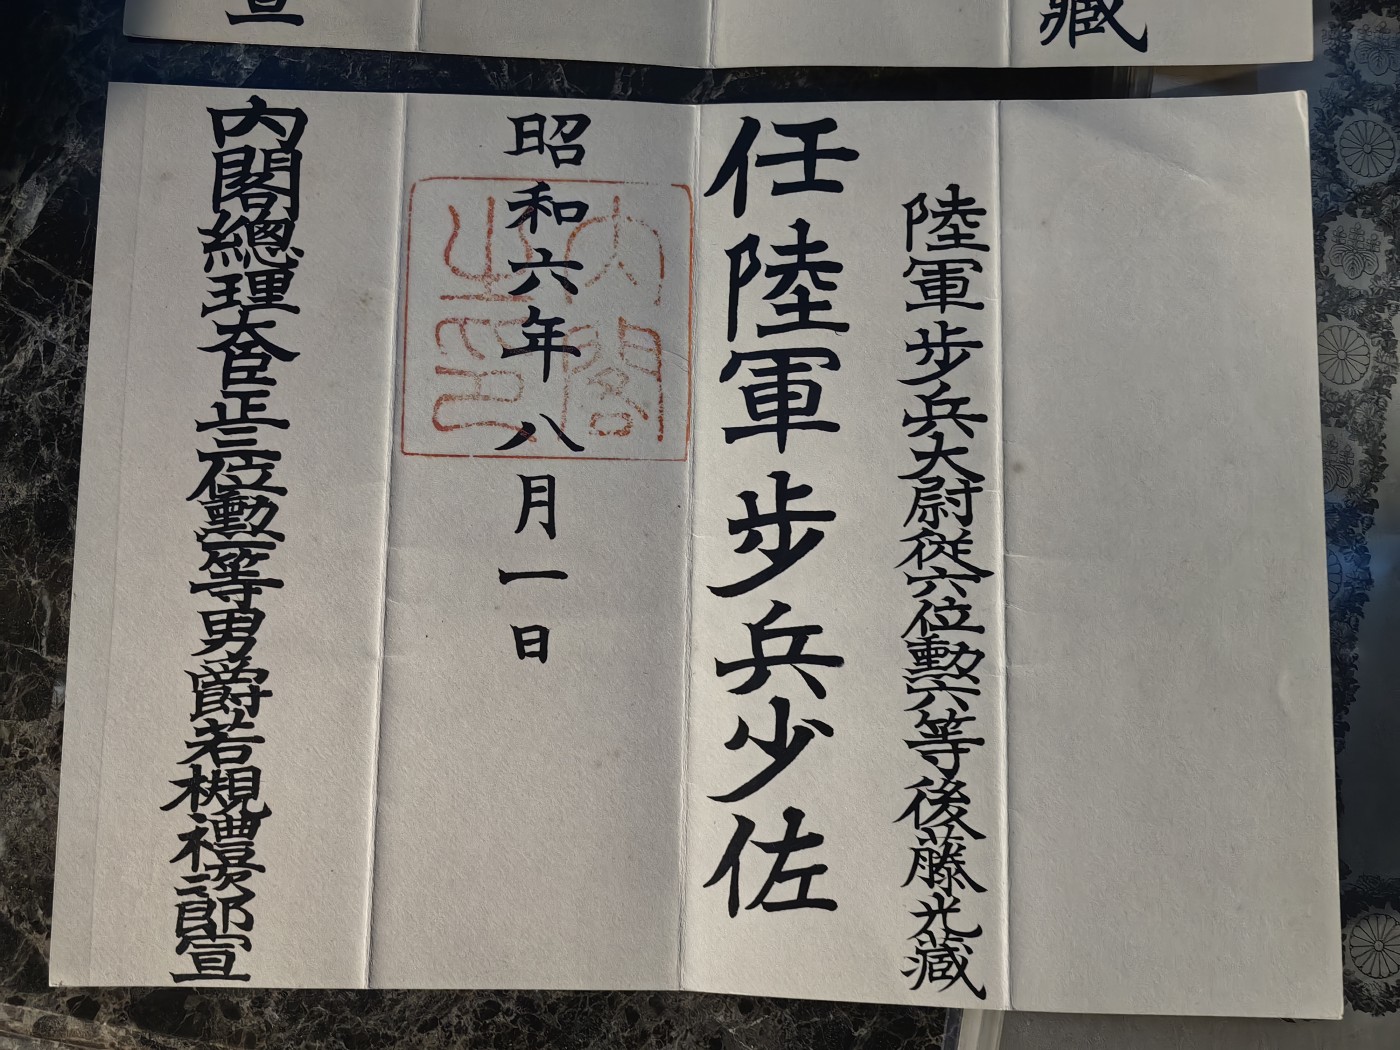 藏
宣
陸軍步兵大尉從六位勳六等後藤光藏
任陸軍步兵少佐
昭和六年八月一日
內閣之印
內閣總理大臣正三位勳一等男爵若槻禮次郎宣